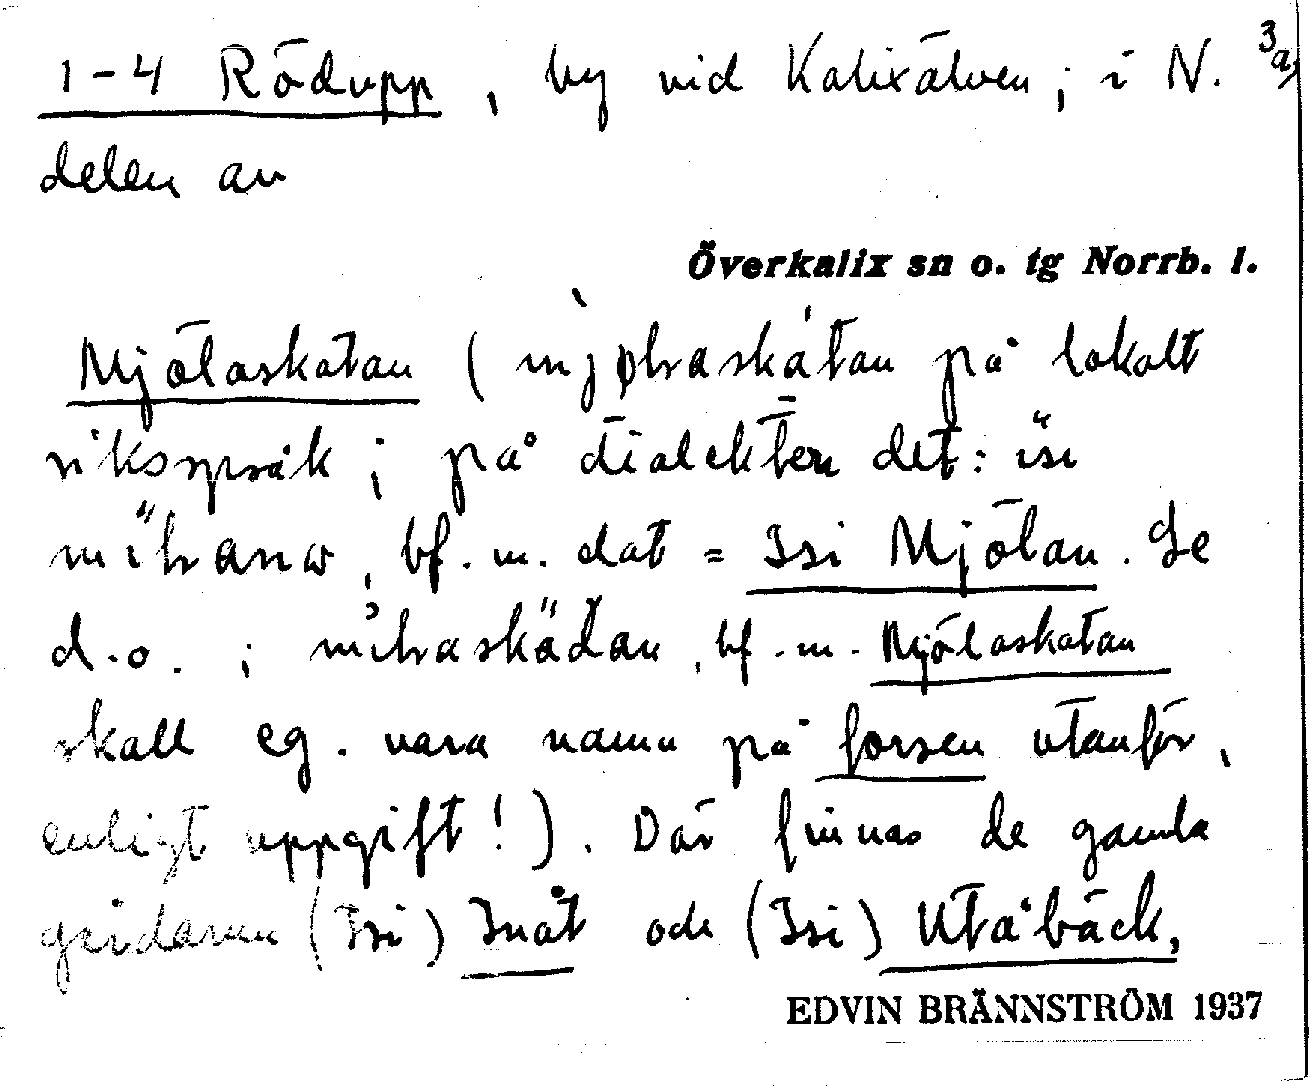 1-4 Rödupp, by vid Kalixälven; i N. 3a
delen av
Överkalix sn o. tg Norrb. l.
Mjölaskatan ( på lokalt
riksspråk; på dialekten det: isi
bf. m. dat = Isi Mjölan. Se
d.o. ; bf. m. Mjölaskatan
skall eg. vara namn på forsen utanför,
enligt uppgift!). Där finnas de gamla
gårdarna (Isi) Inåt och (Isi) Utåbäck,
EDVIN BRÄNNSTRÖM 1937